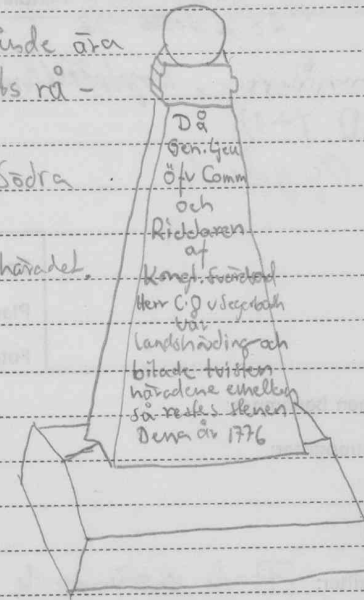 ära
rå -
Södra
häradet.
Då
Gen. Ljeu
Öfv Comm
och
Riddaren
af
Kongl. Svärdsod
Herr C. v Segebath
var
landshövding och
bilade tvisten
häradene emellen
så restes stenen
Denna år 1776